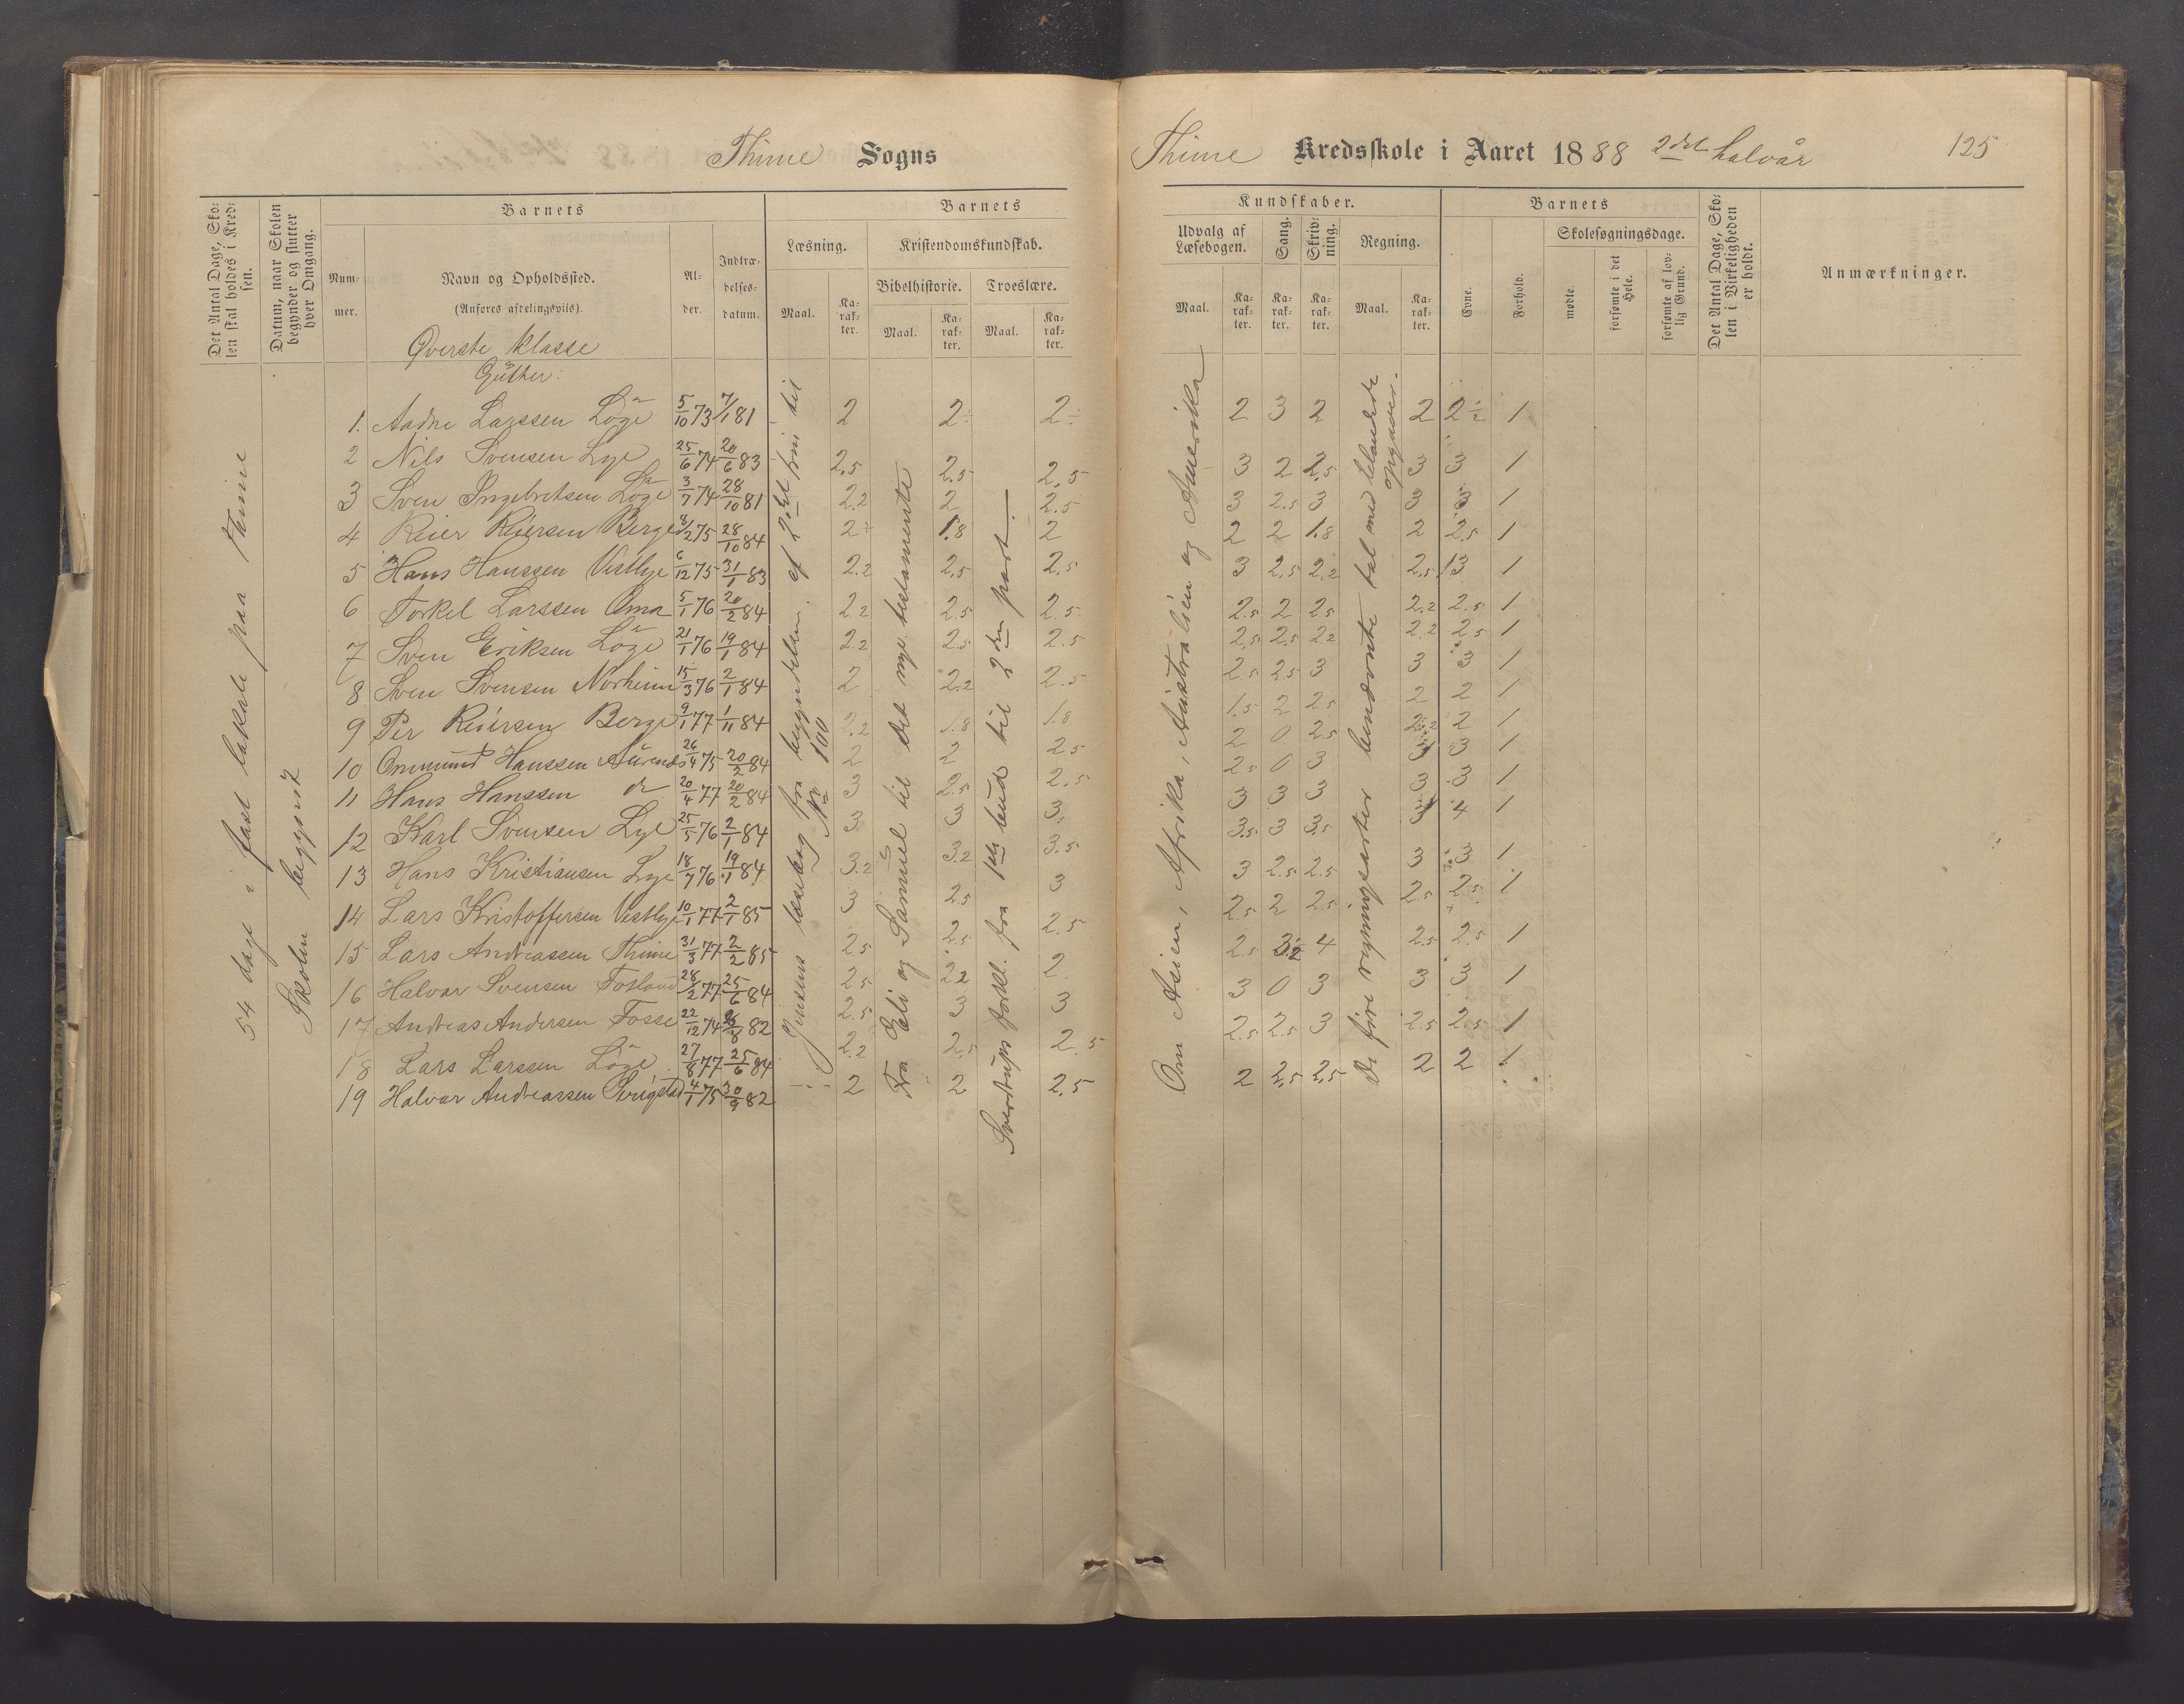 Thime Sogns
Thime Kredsskole i Aaret 1888 2det halvår 125
Det Antal Dage, Skolen skal holdes i Kredsen.
Datum, naar Skolen begynder og slutter hver Omgang.
Barnets
Nummer.
Navn og Opholdssted.
(Anføres afdelingsviis).
Alder.
Indtrædelsesdatum.
Barnets
Læsning.
Maal.
Karakter.
Kristendomskundskab.
Bibelhistorie.
Maal.
Karakter.
Troeslære.
Maal.
Karakter.
Kundskaber.
Udvalg af Læsebogen.
Maal.
Karakter.
Sang.
Karakter.
Skrivning.
Karakter.
Regning.
Maal.
Karakter.
Barnets
Evne.
Forhold.
Skolesøgningsdage.
mødte.
forsømte i det Hele.
forsømte af lovlig Grund.
Det Antal Dage, Skolen i Virkeligheden er holdt.
Anmærkninger.
Øverste klasse
Gutter:
54 dage i fast lokale paa Thime
Skolen begynt
Jensens læsebog fra begyndelsen af 2det trin til No 100
Fra Eli og Samuel til det nye testamente
Sverdrups forkl. fra 1ste bud til 2den part
Om Asien, Afrika, Australien og Amerika
De fire regningsarter benævnte tal med blandede opgaver.
1. Aadne Larssen Löge 5/10 73 7/1 81 2 2÷ 2÷ 2 3 2 2 2÷ 1
2 Nils Svensen Lye 25/6 74 20/6 83 2.5 2.5 2.5 3 2 2.5 3 3 1
3 Sven Ingebretsen Löge 3/7 74 28/10 81 2.2 2 2.5 3 2.5 3 3 3 1
4 Reier Reiersen Berge 8/2 75 28/10 84 2÷ 1.8 2 2 2 1.8 2 2.5 1
5 Hans Hanssen Vestlye 6/12 75 31/1 83 2.2 2.5 2.5 3 2.5 2.2 2.5 3 1
6 Torkel Larssen Oma 5/1 76 20/2 84 2.2 2.5 2.5 2.5 2 2.5 2.2 2.5 1
7 Sven Eriksen Löge 21/1 76 19/1 84 2.2 2.5 2.5 2.5 2.5 2.2 2.2 2.5 1
8 Sven Svensen Norheim 15/3 76 2/1 84 2 2.2 2.5 2.5 2.5 3 3 3 1
9 Per Reiersen Berge 9/1 77 1/11 84 2.2 1.8 1.8 1.5 2 2.5 2 2 1
10 Ommund Hanssen 26/4 75 20/2 84 2 2 2.5 2 0 2.5 2.2 2 1
11 Hans Hanssen do 20/4 77 20/2 84 3 2.5 2.5 2.5 0 3 3 3 1
12 Karl Svensen Lye 25/5 76 2/1 84 3 3 3 3 3 3 3 3 1
13 Hans Kristiansen Lye 18/7 76 19/1 84 3.2 3.2 3.5 3.5 3 3.5 4 1
14 Lars Kristoffersen Vestlye 10/1 77 2/1 85 3 2.5 3 3 2.5 2.5 3 3 1
15 Lars Andreassen Thime 31/3 77 2/2 85 2.5 2.5 2.5 2.5 2 2.5 2.5 2.5 1
16 Halvar Svensen Fosland 28/2 77 25/6 84 2.5 2.2 2 2.5 4 2.5 2.5 1
17 Andreas Andersen Fosse 22/12 74 82 2.5 3 3 3 0 3 3 3 1
18 Lars Larssen Löge 27/8 77 25/6 84 2.2 2.5 2.5 2.5 2.5 3 2.5 2.5 1
19 Halvar Andreassen 4/1 75 30/9 82 2 2 2.5 2 2.5 2.5 2 2 1